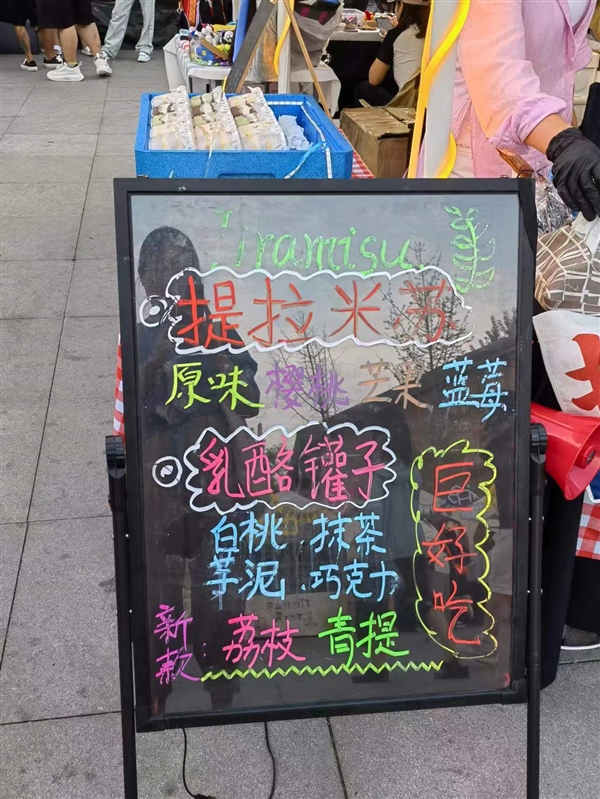 Tiramisu
提拉米苏
原味 樱桃 芒果 蓝莓
乳酪罐子
白桃 抹茶
芋泥 巧克力
巨好吃
新款: 荔枝 青提